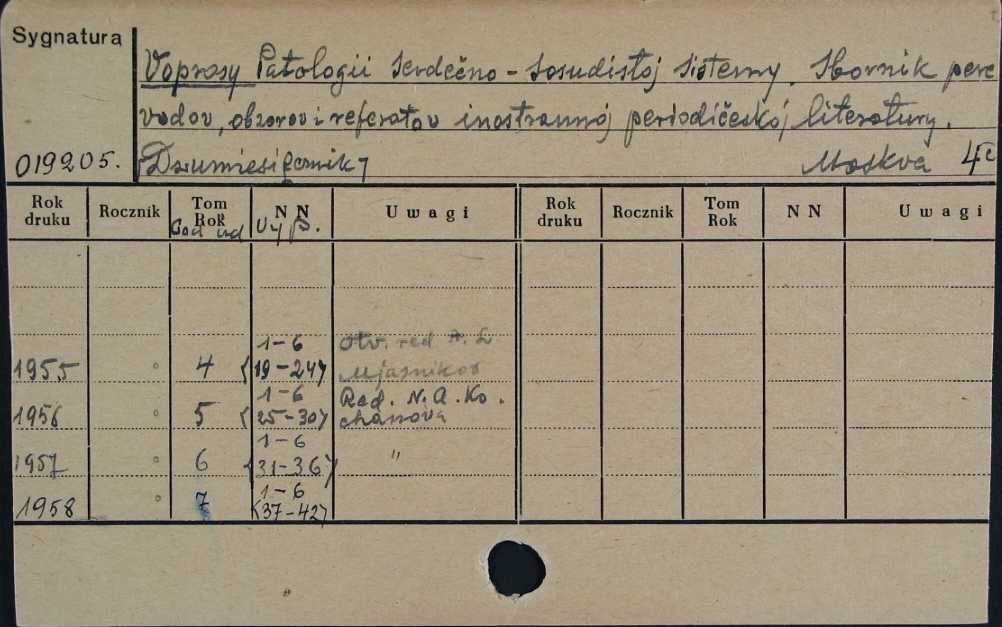 Sygnatura
Voprosy Patologii Serdečno-Sosudistoj Sistemy. Sbornik pere
vodov, obzorov i referatov inostrannoj periodičeskoj literatury.
019205. Dwumiesięcznik Moskva 4c
Rok druku Rocznik Tom Rok N N Uwagi Rok druku Rocznik Tom Rok N N Uwagi
God izd Vyp.
1-6 Otv. red A. L
1955 4 (19-24) Mjasnikov
1-6 Red. N. A. Ko.
1956 5 (25-30) chanova
1-6
1957 6 (31-36) "
1-6
1958 7 (37-42)